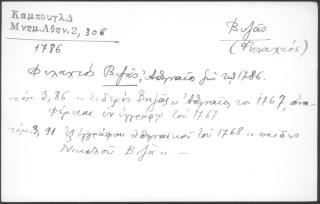 Καμπούγλ. Δ
Μνημ. Αθην. 2, 306
1786
Βιζᾶς
(Φιλακτός)
Φιλακτός Βιζᾶς, Ἀθηναῖος ζῶν τῷ 1786.
τόμ. 3, 86 « Σιδερῆς Βηζᾶς » Ἀθηναῖος τοῦ 1767, ἀνα-
φέρεται ἐν ἐγγράφῳ τοῦ 1767.
τόμ. 3, 91 ἐξ ἐγγράφου ἀθηναϊκοῦ τοῦ 1768 « παιδὶ
Νικολοῦ Βιζᾶ » —